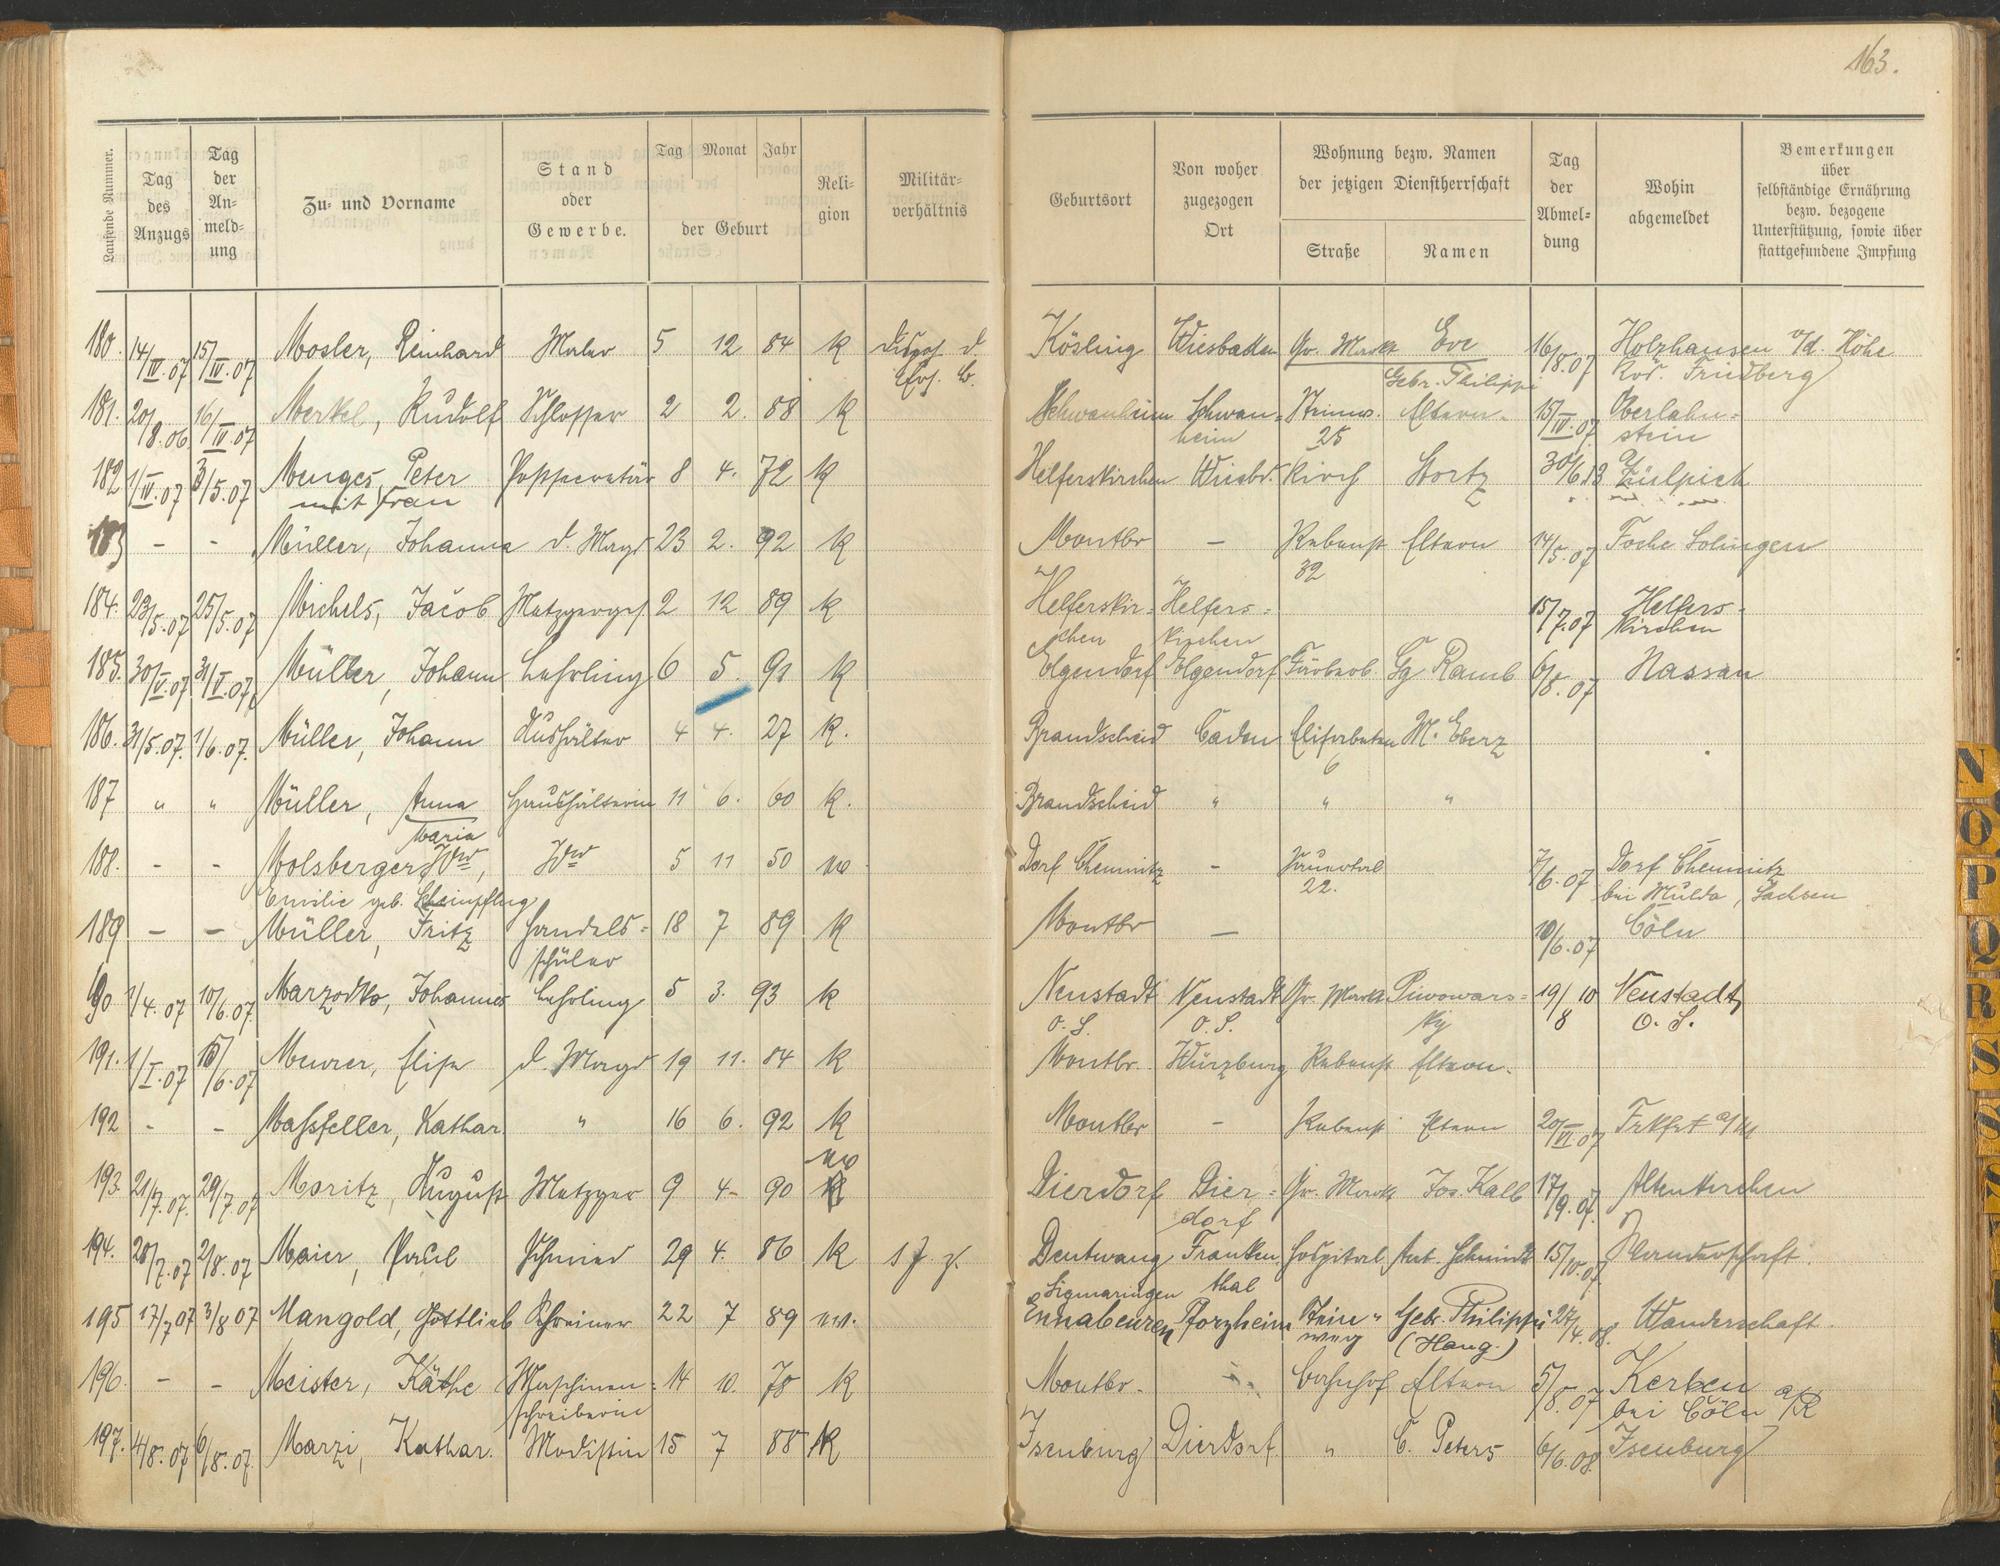 163.
Laufende Nummer.
Tag des Anzugs
Tag der An- meld- ung
Zu- und Vorname
Stand oder Gewerbe.
Tag Monat Jahr der Geburt
Reli- gion
Militär- verhältnis
Geburtsort
Von woher zugezogen Ort
Wohnung bezw. Namen der jetzigen Dienstherrschaft
Straße
Namen
Tag der Abmel- dung
Wohin abgemeldet
Bemerkungen über selbständige Ernährung bezw. bezogene Unterstützung, sowie über stattgefundene Impfung
180. 14/IV.07 15/IV.07 Mosler, Reinhard Maler 5 12 84 k Kösling Wiesbaden Gr. Markt Eve 16/8.07 Holzhausen v/d. Höhe
Gebr. Philippi Friedberg
181. 20/8.06. 16/IV.07 Merkel, Rudolf Schlosser 2 2. 88 k Schwanheim Schwan- Steinw. Eltern 15/IV.07 Oberlahn-
heim 25 stein
182 1/IV.07 3/5.07 Menges, Peter Postsekretär 8 4. 72 k Helferskirchen Wiesbd. Kirch Stortz 30/6.13 Zülpich
mit Frau
183 - - Müller, Johanna d. Magd 23 2. 92 k Montbr - Rebenst Eltern 14/5.07 Foche Solingen
32
184. 23/5.07 25/5.07 Michels, Jacob Metzgerges. 2 12 89 k Helferskir- Helfers- 15/7.07 Helfers-
chen kirchen kirchen
185. 30/V.07 31/V.07. Müller, Johann Lehrling 6 5. 91 k Elgendorf Elgendorf Färberb. Gg Ramb 6/8.07 Nassau
186. 31/5.07. 1/6.07. Müller, Johann Aushälter 4 4. 27 k. Brandscheid Caden Elisabethen M. Eberz
6
187 " " Müller, Anna Haushälterin 11 6. 60 k. Brandscheid " " "
Maria
188. - - Molsberger, Ww, Ww 5 11 50 ev Dorf Chemnitz - Sauertal 7/6.07 Dorf Chemnitz
Emilie geb. Schimpfling 22. bei Mulda, Sachsen
189 - - Müller, Fritz Handels- 18 7 89 k Montbr - 10/6.07 Cöln
schüler
190 1/4.07 10/6.07. Marzodko, Johannes Lehrling 5 3. 93 k Neustadt Neustadt Gr. Markt Piwowars- 19/8 10 Neustadt
O. S. O. S. ky O. S.
191. 1/I.07 15/6.07 Meurer, Elise d. Magd 19 11. 84 k Montbr. Würzburg Rebenst Eltern.
192 - - Maßfeller, Kathar. " 16 6. 92 k Montbr - Rebenst Eltern 20/VI.07 Frkfrt a/M
193. 21/7.07. 29/7.07 Moritz, August Metzger 9 4- 90 ev Dierdorf Dier- Gr. Markt Jos. Kalb 17/9.07. Altenkirchen
dorf
194. 28/7.07 2/8.07 Maier, Paul Schmied 29 4. 86 k Dentwang Franken Hospital Ant. Schmidt 15/10.07 Wanderschaft.
Sigmaringen thal
195 17/7 07 3/8 07 Mangold, Gottlieb Schreiner 22 7 89 ev. Ennabeuren Pforzheim Stein- Gebr. Philippi 24/4.08. Wanderschaft.
weg (Haug.)
196. - - Meister, Käthe Maschinen- 14 10. 78 k Montbr. Bahnhof Eltern 5/8.07 Kerben
schreiberin bei Cöln a/R
197. 4/8.07 6/8.07. Marzi, Kathar. Modistin 15 7 88 k Isenburg Dierdorf. " C. Peters 6/6.08. Isenburg
N
O
P
Q
R
S